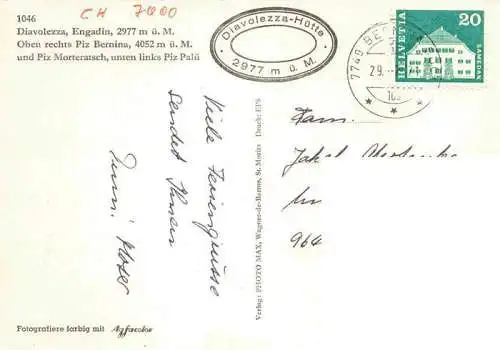 CH 7000
1046
Diavolezza, Engadin, 2977 m ü. M.
Oben rechts Piz Bernina, 4052 m ü. M.
und Piz Morteratsch, unten links Piz Palü
Diavolezza-Hütte
2977 m ü. M.
7749 BE
29.
HELVETIA
20
SAMEDAN
Viele Feriengrüsse
sendet Ihnen
Fam.
Jakob
964
Verlag: PHOTO MAX, Wagner-de-Barros, St. Moritz Druck: EPS
Fotografiere farbig mit Agfacolor